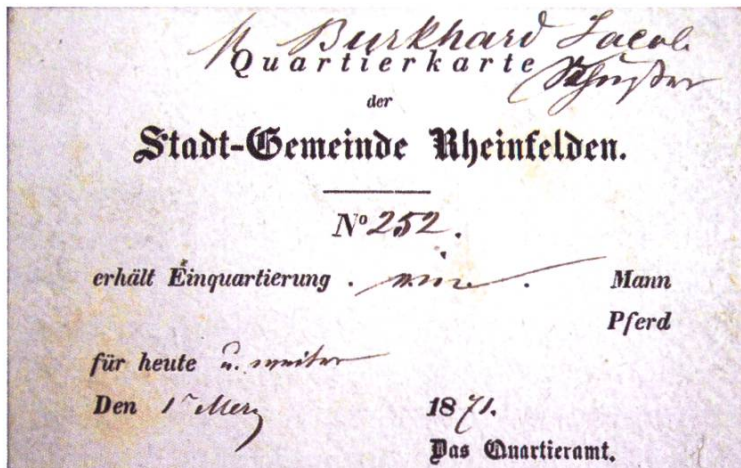 Burkhard Jacob
Quartierkarte
Schuster
der
Stadt-Gemeinde Rheinfelden.
Nº 252.
erhält Einquartierung . . Mann
Pferd
für heute u. weiter
Den 1r Merz 1871.
Das Quartieramt.